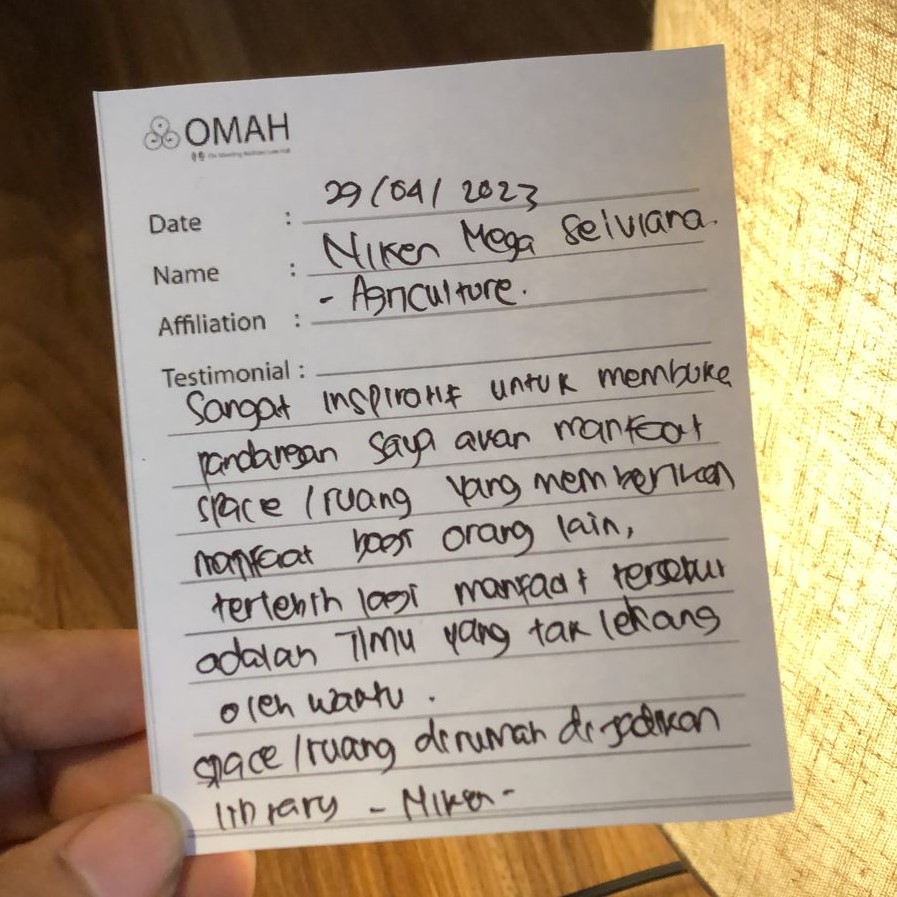 OMAH
Date : 29/04/2023
Name : Niken Mega Selviana.
Affiliation : - Agriculture.
Testimonial :
Sangat inspiratif untuk membuka
pandangan saya akan manfaat
space / ruang yang memberikan
manfaat bagi orang lain,
terlebih lagi manfaat tersebut
adalah Ilmu yang tak lekang
oleh waktu.
space / ruang dirumah di jadikan
library - Niken -